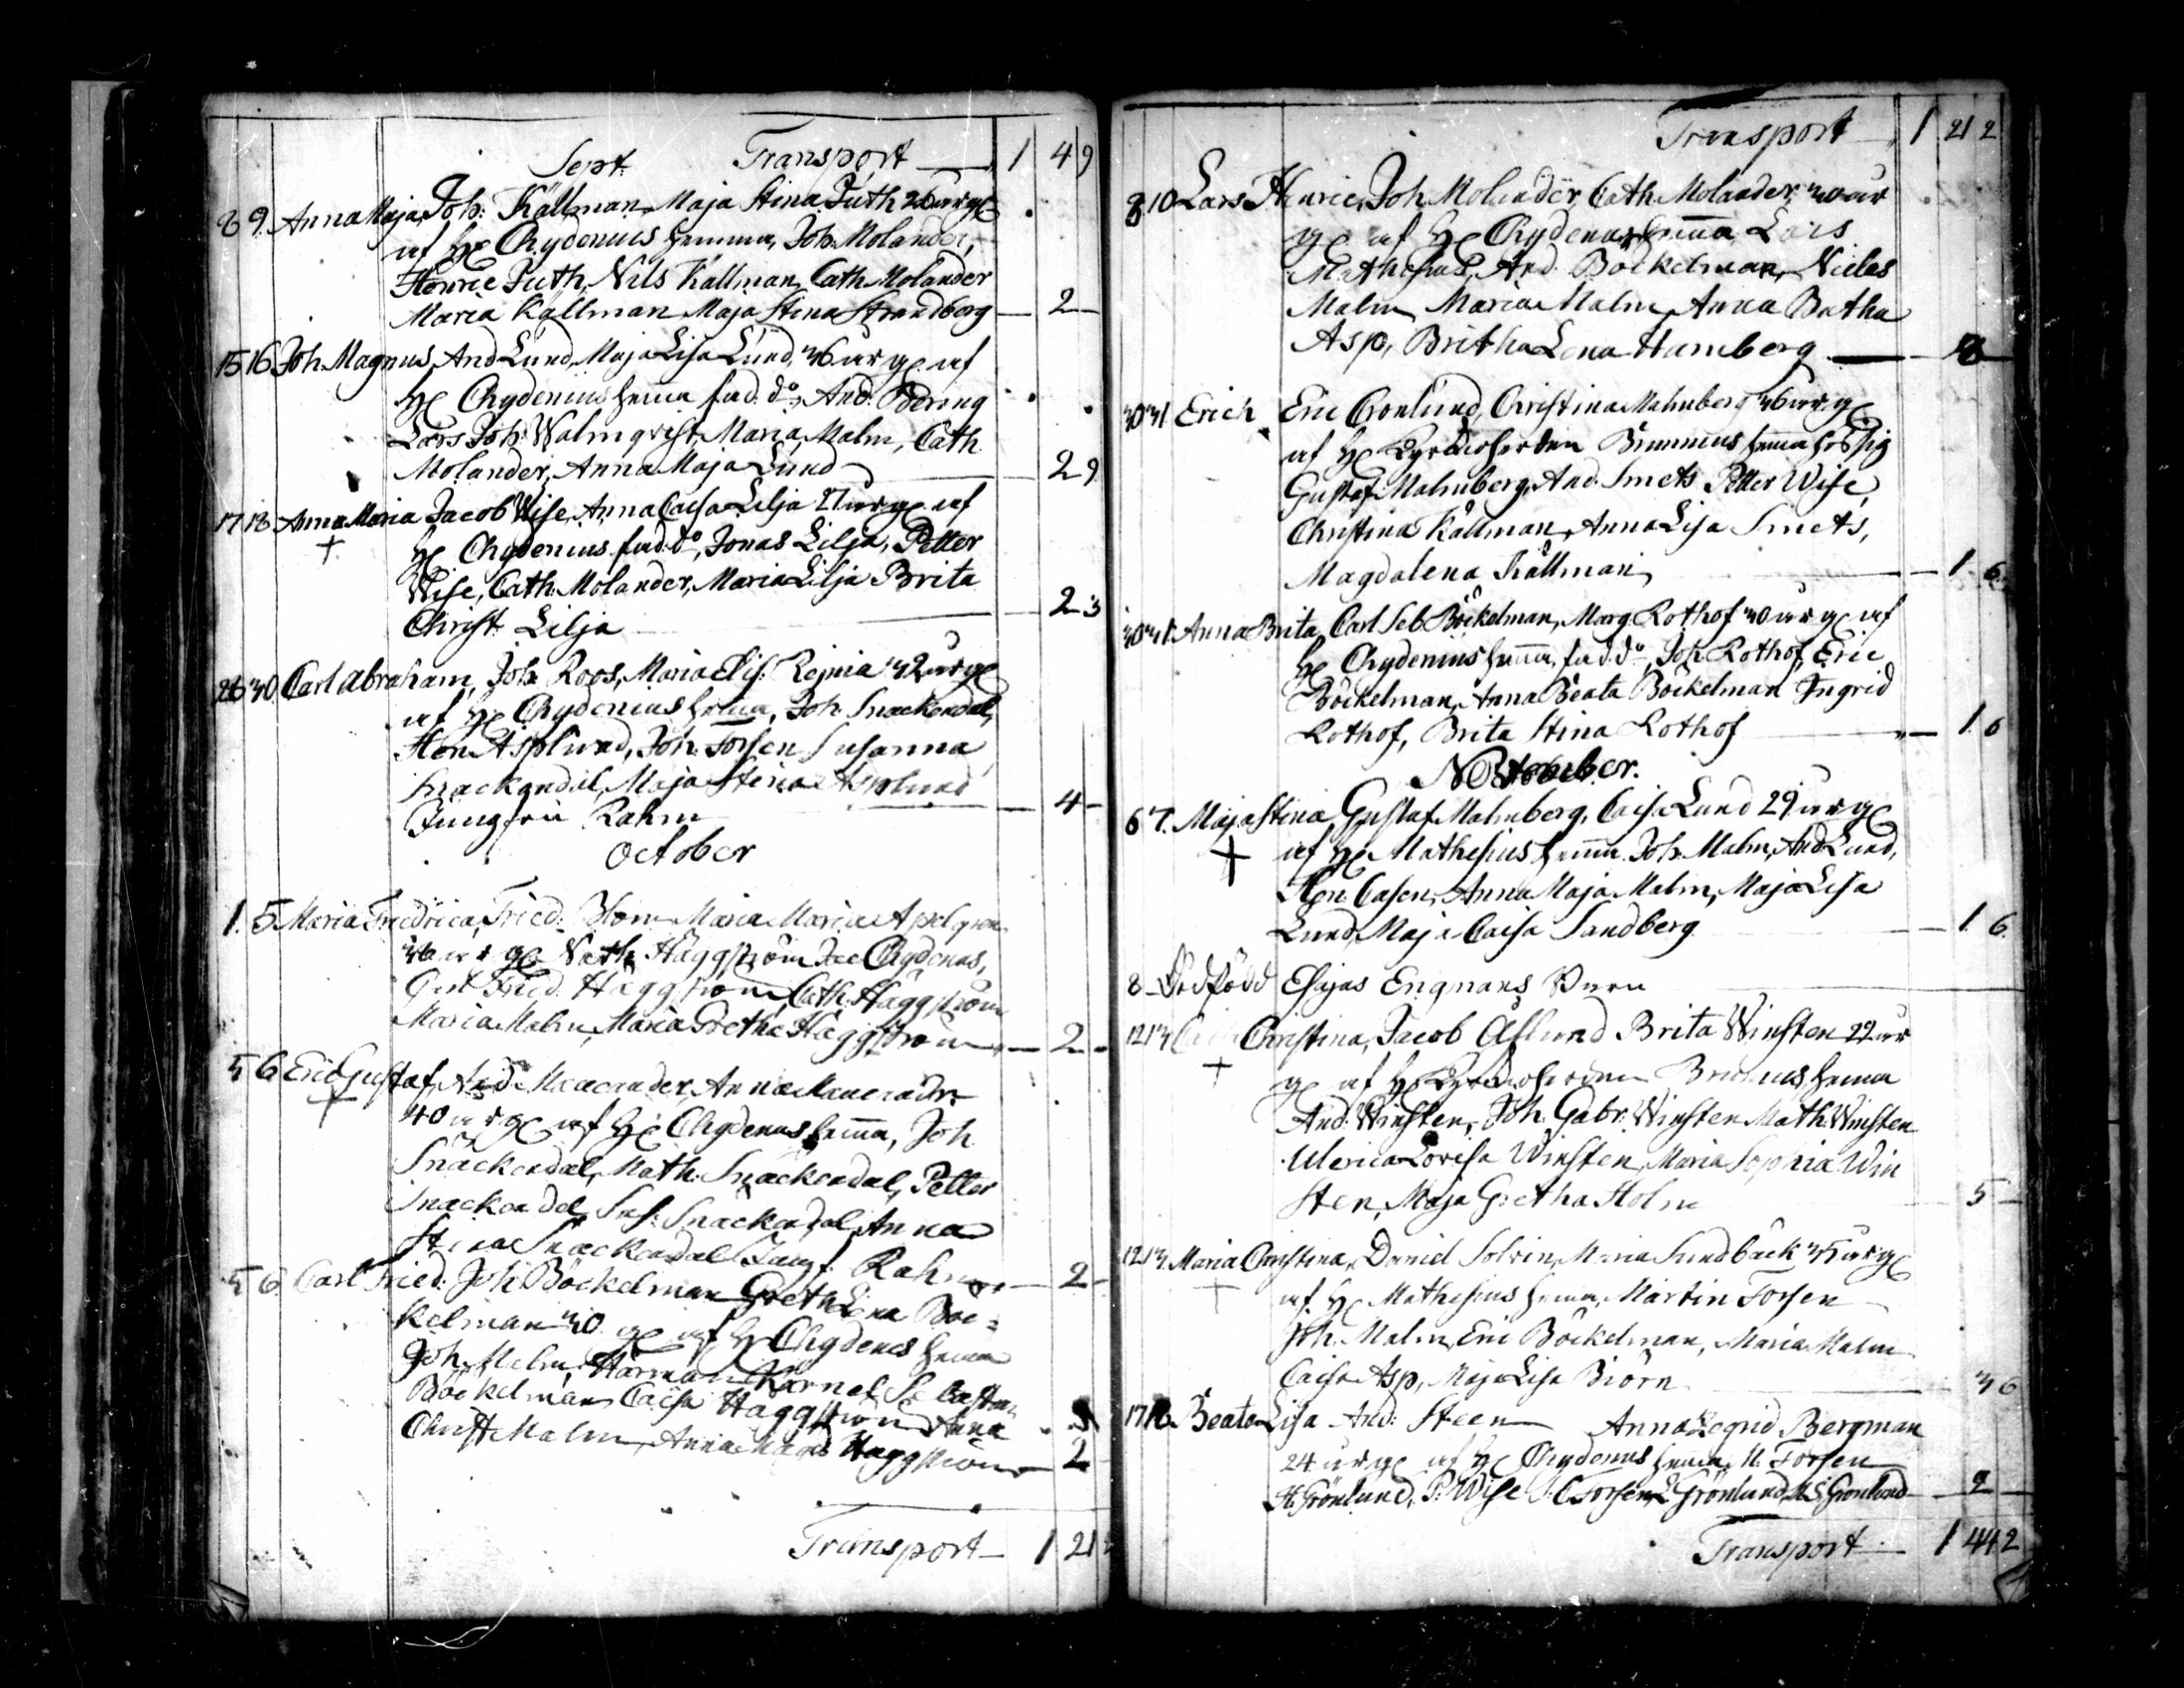 Sept. Transport 1 4 9
8 9. Anna Maja, Joh: Källman, Maja Stina Puth 26 år gl
af H. Chydenius hemma, Joh. Molander,
Henric Puth, Nils Källman, Cath. Molander
Maria Källman Maja Stina Strandberg 2
15 16 Joh. Magnus, And. Lund, Maja Lisa Lund, 36 år gl af
H. Chydenius hemma fad. do, And.
Lars Joh. Walmqvist, Maria Malm, Cath.
Molander, Anna Maja Lund 2 9
17 18 Anna Maria Jacob Wise, Anna Caisa Lilja 27 år gl af
+ H. Chydenius fad. do, Jonas Lilja, Petter
Wise, Cath. Molander, Maria Lilja Brita
Christ. Lilja 2 3
30 Carl Abraham, Joh. Roos, Maria Elis. 32 år gl
af H. Chydenius hemma, Joh. Snackendal,
Hen. Asplund, Joh. Forsen Susanna
Snackendal, Maja Stina Asplund
Jungfru Rahm 4
October
1. 5 Maria Fredrica, Fried. Blom Maria Maria Apelgren
36 år gl Nath. Häggström Jac. Chydenius,
Fried. Häggström, Cath. Häggström
Maria Malm, Maria Gretha Häggström 2
5 6 Eric Gustaf, And. Anna
+ 40 år gl af H. Chydenius hemma, Joh.
Snäckendal, Math. Snäckendal, Petter
Snackendel Sus. Snackendal, Anna
Stina Snackendal Jungf. Rahm 2
5 6 Carl Fried. Joh. Böckelman Greth. Lena Böc=
kelman 30 gl af H. Chydenius hemma
Joh. Malm, Herman
Böckelman Caisa Häggström Anna
Christ. Malm, Anna Magd. Häggström 2
Transport 1 21 2
Transport 1 21 2
8 10 Lars Henric, Joh. Molander, Cath. Molander, 30 år
gl af H. Chydenius hemma, Lars
Mathesius, And. Böckelman, Niclas
Malm, Maria Malm, Anna Bretha
Asp, Britha Lena Hamberg 8
30 31 Erich Eric Cronlund, Christina Malmberg 36 år gl
af H. Kyrckoherden Brunnius hemma hos sig
Gustaf Malmberg, And. Smets Petter Wise,
Christina Källman, Anna Lisa Smets,
Magdalena Källman, 1. 6.
30 31 Anna Brita, Carl Seb. Böckelman, Marg. Rothof 30 år gl af
H. Chydenius hemma, fad. do, Joh. Rothof, Eric
Böckelman, Anna Beata Böckelman Ingrid
Rothof, Brita Stina Rothof 1. 6
November.
6 7. Maja Stina, Gustaf Malmberg, Caisa Lund 29 år gl
+ af H. Mathesius hemma. Joh. Malm, And. Lund,
Hen. Casen, Anna Maja Malm, Maja Lisa
Lund, Maja Caisa Sandberg 1. 6.
8 Dödfödd Esajas Engmans Barn
12 13 Christina, Jacob Åslund Brita Winsten 22 år
+ gl af H. Kyrckoherden Brunnius hemma
And. Winsten, Joh. Gabr. Winsten Math. Winsten
Ulrica Lovisa Winsten, Maria Sophia Win
sten, Maja Gretha Holm 5
12 13. Maria Christina, Daniel Solvin, Maria Sundback 35 år gl
+ af H. Mathesius hemma, Martin Forsen
Joh. Malm, Eric Böckelman, Maria Malm
Caisa Asp, Maja Lisa Biörn 3 6
17 18. Beata Lisa And: Steen Anna Ingrid Bergman
24 år gl af H. Chydenius hemma, M. Forsen
H. Grönlund, P. Wise Forsen, Grönlund, M. S. Grönlund 2
Transport 1 44 2